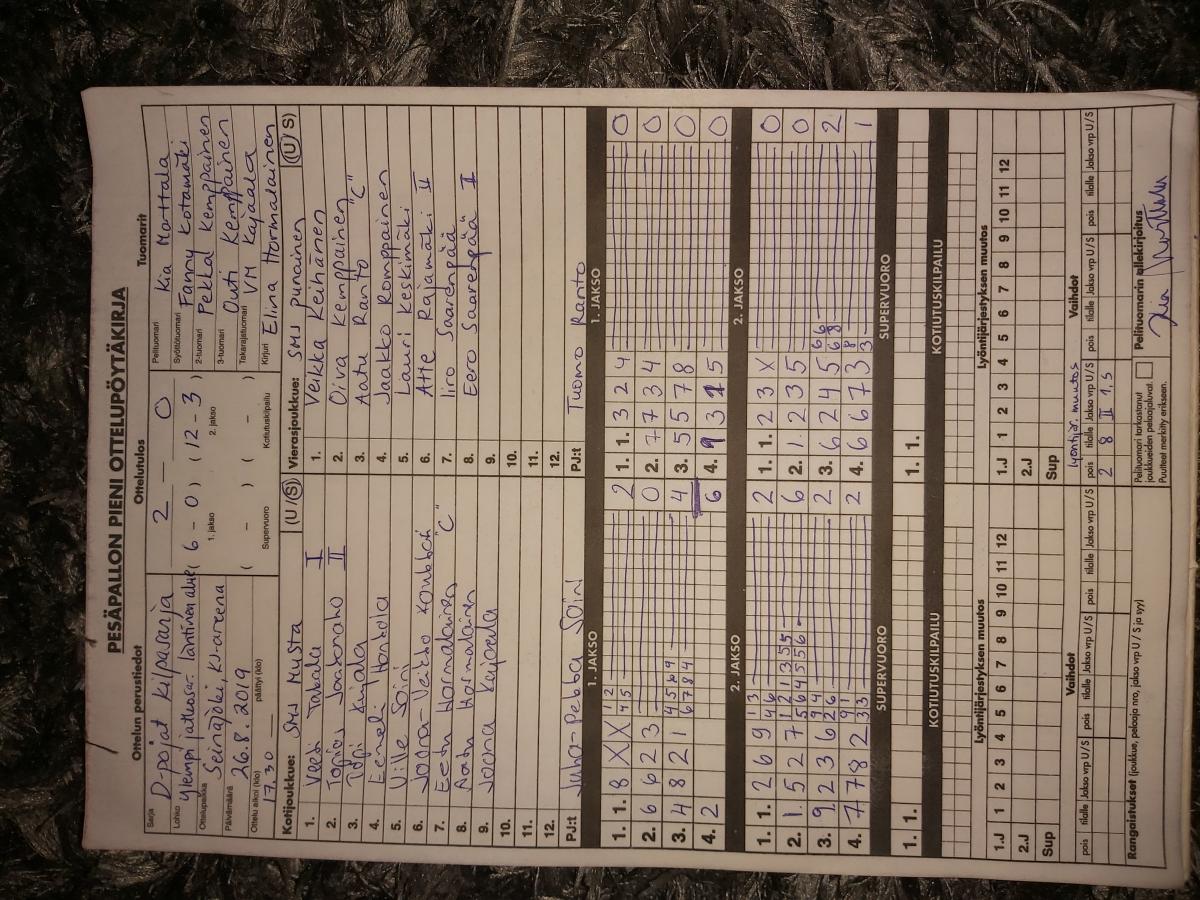 PESÄPALLON PIENI OTTELUPÖYTÄKIRJA
Ottelun perustiedot
Ottelutulos
Tuomarit
Sarja D-pojat Kilpasarja
Lohko Ylempi jatkosar. läntinen alue
Ottelupaikka Seinäjoki, KJ-areena
Päivämäärä 26.8.2019
Ottelu alkoi (klo) 17.30 päättyi (klo)
2 — 0
( 6 - 0 ) ( 12 - 3 )
1. jakso 2. jakso
( - ) ( - )
Supervuoro Kotiutuskilpailu
Pelituomari Kia Marttala
Syöttötuomari Fanny Kotamäki
2-tuomari Pekka Kemppainen
3-tuomari Outi Kemppainen
Takarajatuomari VM Kajaala
Kirjuri Elina Hormalainen
Kotijoukkue: SMJ Musta (U / S)
1. Veeti Takala I
2. Topias II
3.
4. Eemeli Honkola
5. Ville Soini
6.
7. Eetu Hormalainen "C"
8. Aatu Hormalainen
9. Joona Kajaala
10.
11.
12.
PJ:t Juha-Pekka Soini
Vierasjoukkue: SMJ punainen (U / S)
1. Veikka Keihänen
2. Oiva Kemppainen
3. Aatu Ranto "C"
4. Jaakko Romppainen
5. Lauri Keskimäki
6. Atte Rajamäki II
7. Iiro Saarenpää
8. Eero Saarenpää I
9.
10.
11.
12.
PJ:t Tuomo Ranto
1. JAKSO
1. JAKSO
1. 1. 8 X X 1 2 4 5 2
2. 6 6 2 3 0
3. 4 8 2 1 4 5 6 9 6 7 8 4 4
4. 2 6
1. 1. 3 2 4 0
2. 7 7 3 4 0
3. 5 5 7 8 0
4. 3 5 0
2. JAKSO
2. JAKSO
1. 1. 2 6 9 1 3 4 6 2
2. 1. 5 2 7 6
3. 9 2 3 6 2
4. 7 7 8 2 2
1. 1. 2 3 X 0
2. 1. 2 3 5 0
3. 6 2 4 5 6 6 6 8 2
4. 6 6 7 3 8 3 1
SUPERVUORO
SUPERVUORO
1. 1.
1. 1.
KOTIUTUSKILPAILU
KOTIUTUSKILPAILU
Lyöntijärjestyksen muutos
1.J 1 2 3 4 5 6 7 8 9 10 11 12
2.J
Sup
Lyöntijärjestyksen muutos
1.J 1 2 3 4 5 6 7 8 9 10 11 12
2.J
Sup
Vaihdot
pois tilalle Jakso vrp U/S pois tilalle Jakso vrp U/S pois tilalle Jakso vrp U/S
Lyöntijär. muutos
Vaihdot
pois tilalle Jakso vrp U/S pois tilalle Jakso vrp U/S pois tilalle Jakso vrp U/S
2 8 II 1,5
Rangaistukset (joukkue, pelaaja nro, jakso vrp U / S ja syy)
Pelituomari tarkastanut
joukkueiden pelaajaluvat.
Puutteet merkitty erikseen.
Pelituomarin allekirjoitus